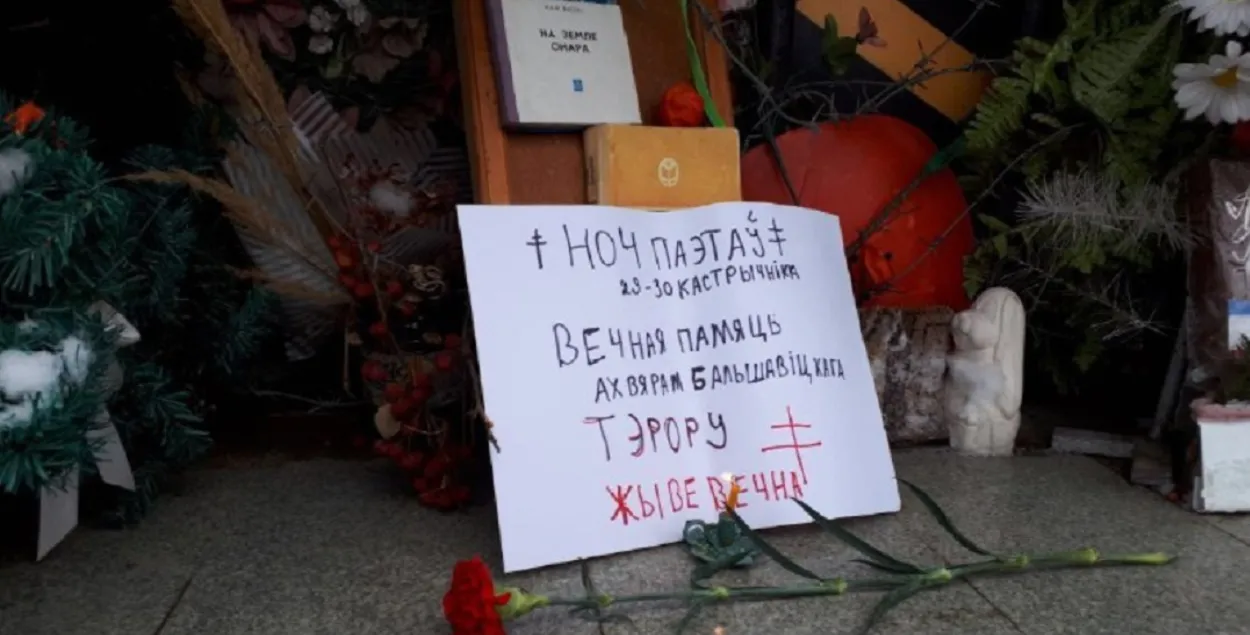 НА ЗЕМЛЕ
ОМАРА
НОЧ ПАЭТАЎ
29-30 КАСТРЫЧНІКА
ВЕЧНАЯ ПАМЯЦЬ
АХВЯРАМ БАЛЬШАВІЦКАГА
ТЭРОРУ
ЖЫВЕ ВЕЧНА